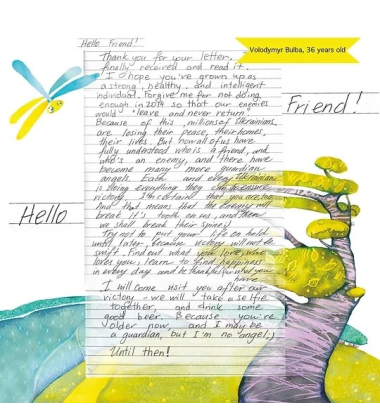 Hello Friend!
Volodymyr Bulba, 36 years old
Thank you for your letter.
finally received and read it.
I hope you've grown up as
a strong, healthy, and intelligent
individual. Forgive me for not doing
enough in 2014 so that our enemies
would "leave and never return"
Because of this, millions of Ukrainians
are losing their peace, their homes,
their lives. But now all of us have
fully understood who is a friend, and
who's an enemy, and there have
become many more guardian
angels. Each and every Ukrainian
is doing everything they can to ensure
victory. I'm certain that you are, too.
And that means that the enemy will
break it's tooth on us, and then
we shall break their spine!
Try not to put your life on hold
until later, because victory will not be
swift. Find out what your love, who
loves you, learn to find happiness
in every day, and be thankful for what you
have.
I will come visit you after our
victory - we will take a selfie
together, and drink some
good beer. Because you're
older now, and I may be
a guardian, but I'm no angel;)
Until then!
Friend!
Hello